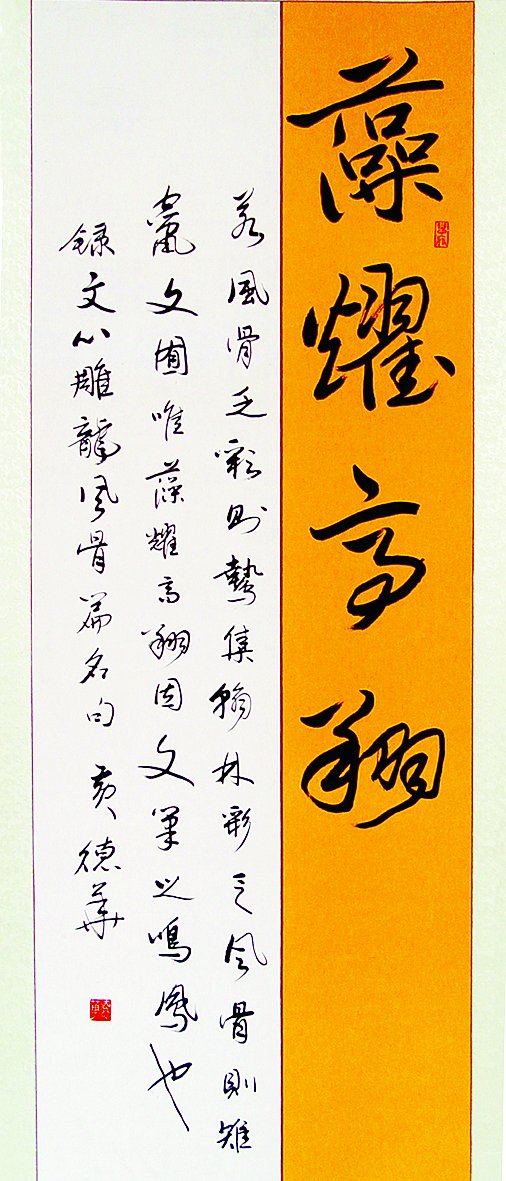 藻耀高翔
若風骨乏彩则鷙集翰林彩乏风骨則雉
竄文囿唯藻耀高翔固文筆之鳴鳳也
録文心雕龍风骨篇名句 黄德華